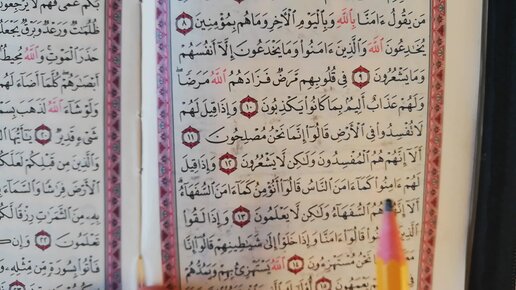 مَن يَقُولُ ءَامَنَّا بِٱللَّهِ وَبِٱلْيَوْمِ ٱلْأَخِرِ وَمَا هُم بِمُؤْمِنِينَ ٨
يُخَـٰدِعُونَ ٱللَّهَ وَٱلَّذِينَ ءَامَنُوا۟ وَمَا يَخْدَعُونَ إِلَّآ أَنفُسَهُمْ
وَمَا يَشْعُرُونَ ٩ فِى قُلُوبِهِم مَّرَضٌ فَزَادَهُمُ ٱللَّهُ مَرَضًا ۖ
وَلَهُمْ عَذَابٌ أَلِيمٌۢ بِمَا كَانُوا۟ يَكْذِبُونَ ١٠ وَإِذَا قِيلَ لَهُمْ
لَا تُفْسِدُوا۟ فِى ٱلْأَرْضِ قَالُوٓا۟ إِنَّمَا نَحْنُ مُصْلِحُونَ ١١
أَلَآ إِنَّهُمْ هُمُ ٱلْمُفْسِدُونَ وَلَـٰكِن لَّا يَشْعُرُونَ ١٢ وَإِذَا قِيلَ
لَهُمْ ءَامِنُوا۟ كَمَآ ءَامَنَ ٱلنَّاسُ قَالُوٓا۟ أَنُؤْمِنُ كَمَآ ءَامَنَ ٱلسُّفَهَآءُ
أَلَآ إِنَّهُمْ هُمُ ٱلسُّفَهَآءُ وَلَـٰكِن لَّا يَعْلَمُونَ ١٣ وَإِذَا لَقُوا۟
ٱلَّذِينَ ءَامَنُوا۟ قَالُوٓا۟ ءَامَنَّا وَإِذَا خَلَوْا۟ إِلَىٰ شَيَـٰطِينِهِمْ قَالُوٓا۟ إِنَّا
نَحْنُ مُسْتَهْزِءُونَ ١٤ ٱللَّهُ يَسْتَهْزِئُ بِهِمْ وَيَمُدُّهُمْ
يَعْمَهُونَ ١٥
ظُلُمَـٰتٌ وَرَعْدٌ وَبَرْقٌ يَجْعَلُونَ
حَذَرَ ٱلْمَوْتِ ۚ وَٱللَّهُ مُحِيطٌۢ
أَبْصَـٰرَهُمْ ۖ كُلَّمَآ أَضَآءَ
وَلَوْ شَآءَ ٱللَّهُ لَذَهَبَ
شَىْءٍ قَدِيرٌ ٢٠ يَـٰٓأَيُّهَا
وَٱلَّذِينَ مِن قَبْلِكُمْ لَعَلَّكُمْ
ٱلْأَرْضَ فِرَٰشًا وَٱلسَّمَآءَ
بِهِۦ مِنَ ٱلثَّمَرَٰتِ رِزْقًا لَّكُمْ
تَعْلَمُونَ ٢٢ وَإِن
فَأْتُوا۟ بِسُورَةٍ مِّن مِّثْلِهِۦ